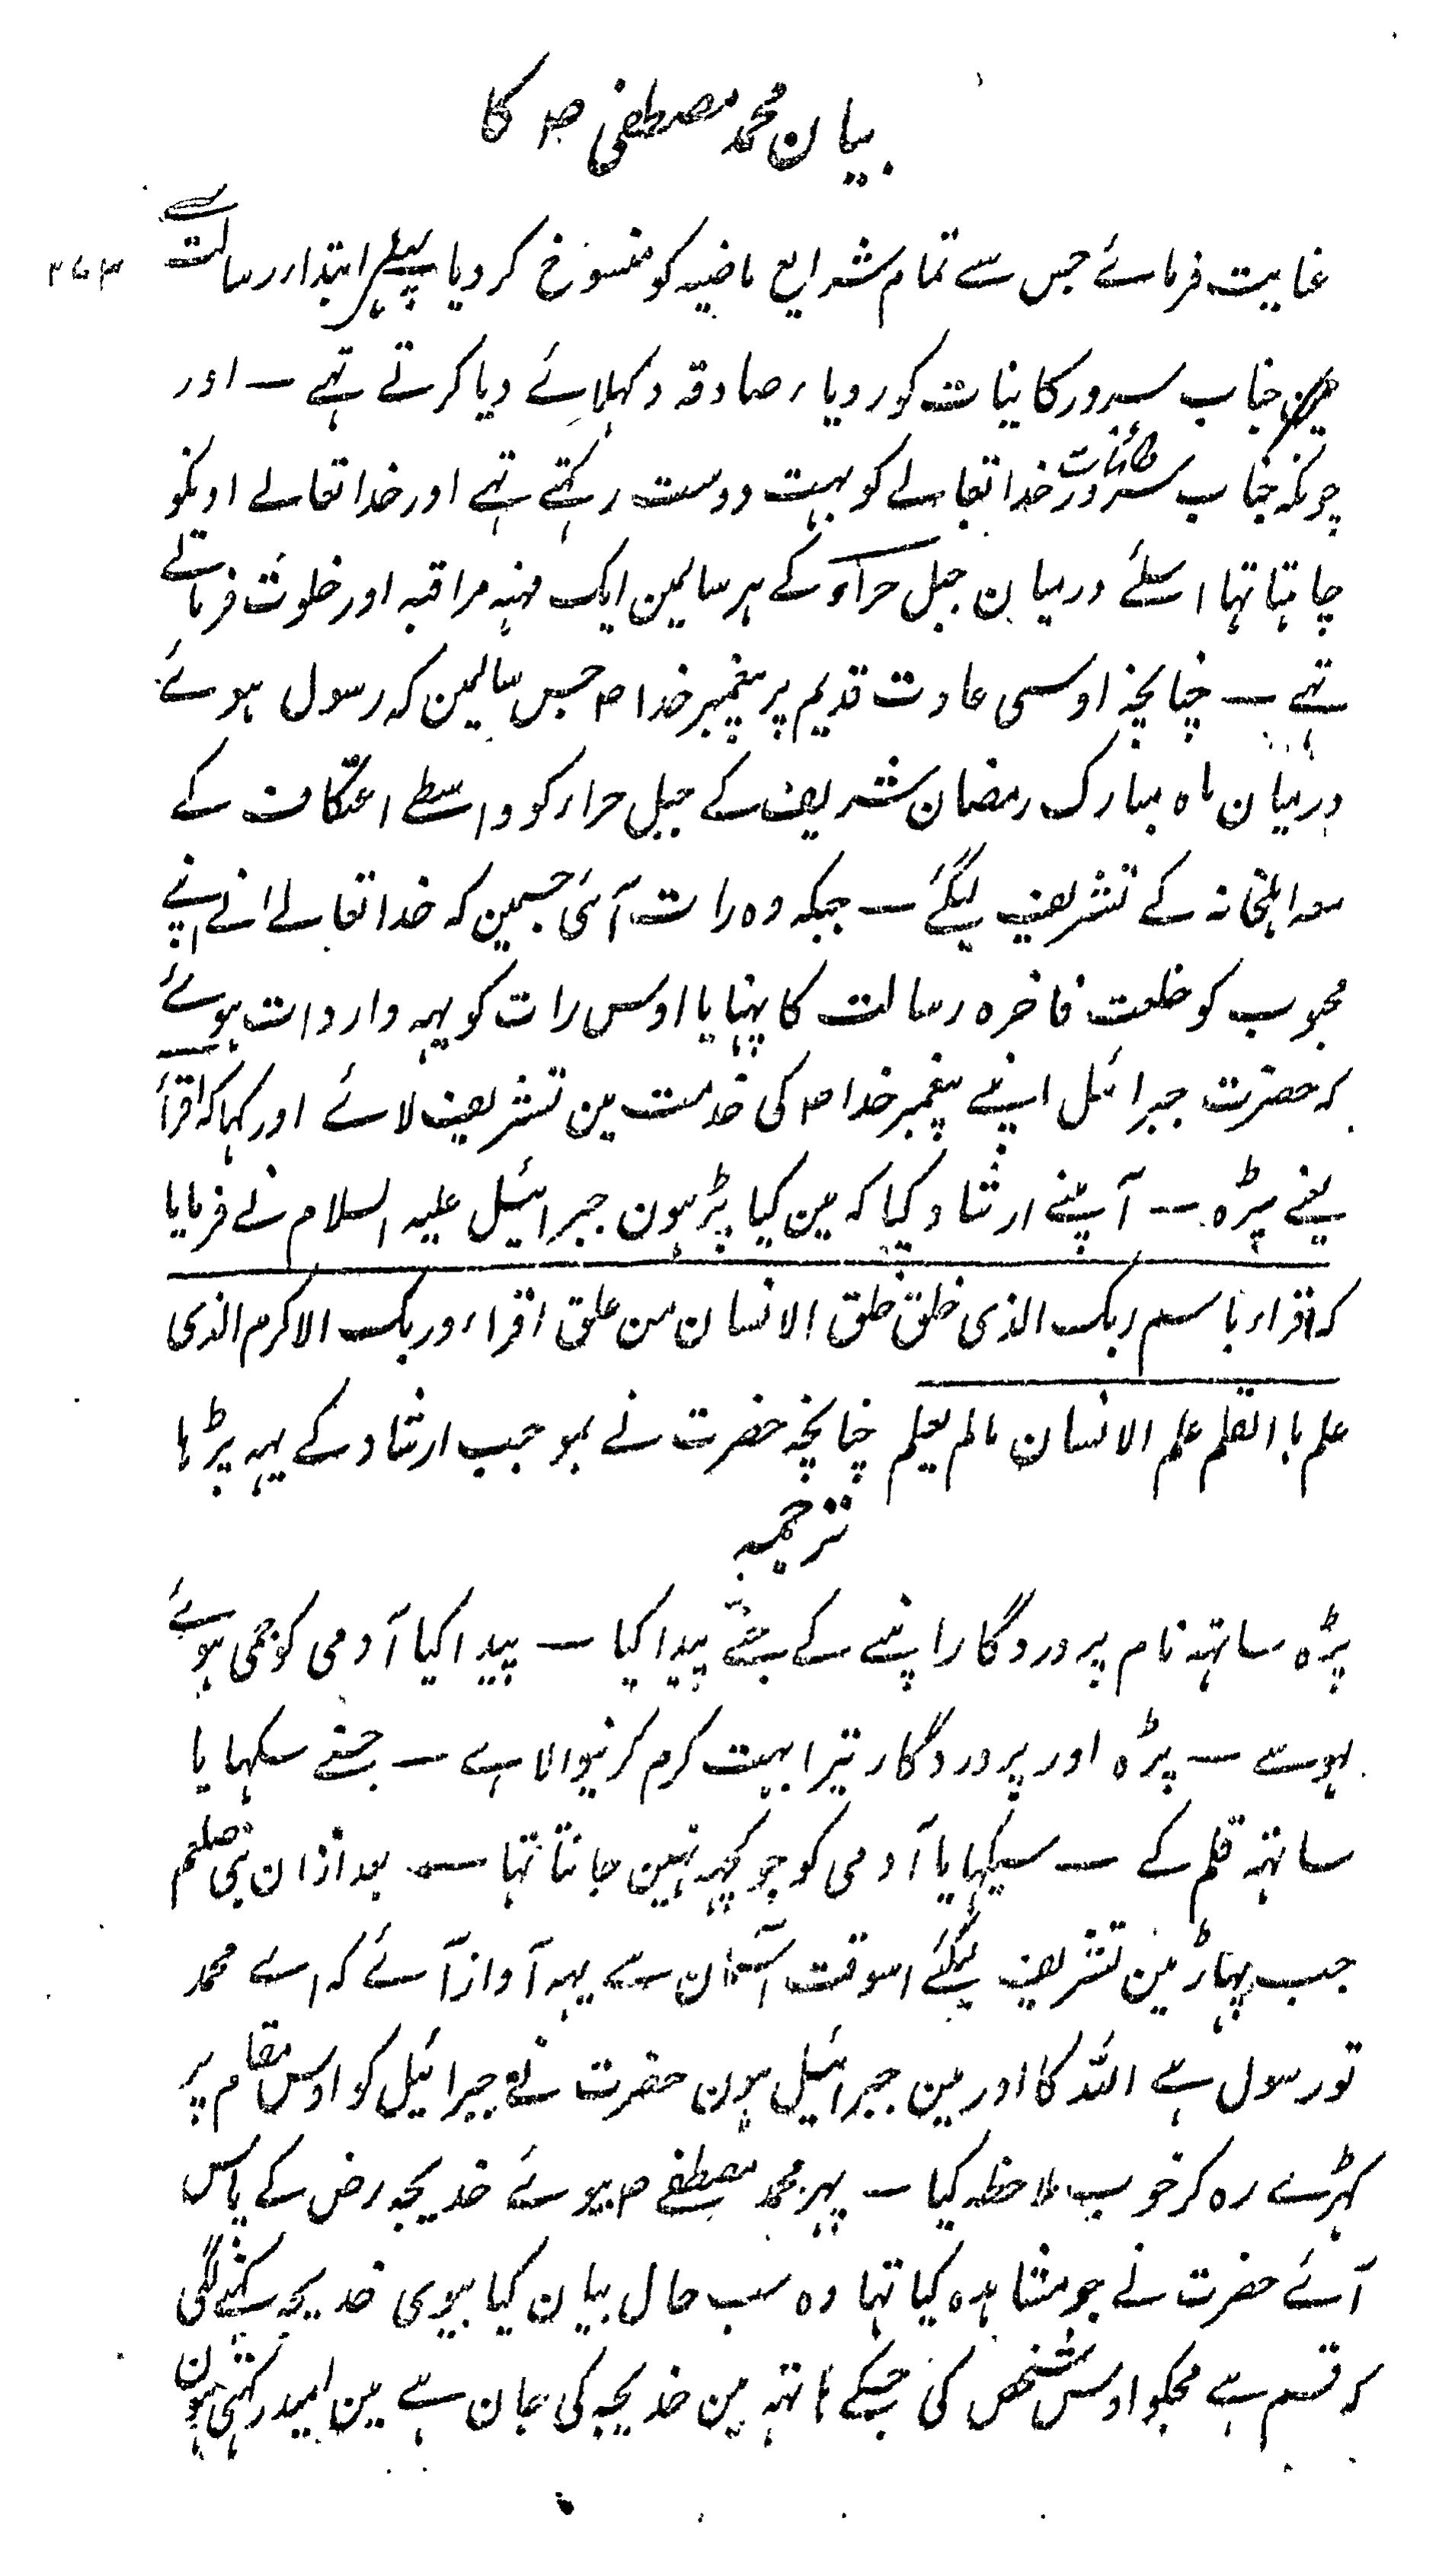 بیان محمد مصطفیٰ ص کا
۲۷۳
عنایت فرمائے جس سے تمام شرایع ماضیہ کو منسوخ کر دیا پہلے ابتداء رسالت سے
مین جناب سرور کاینات کو رویاء صادقہ دکہلائے دیا کرتے تہے — اور
چونکہ جناب سرور کائنات خدا تعالے کو بہت دوست رکہتے تہے اور خدا تعالے اونکو
چاہتا تہا اسلئے درمیان جبل حراء کے ہر سالمین ایک مہنہ مراقبہ اور خلوت فرماتے
تہے — چنانچہ اوسی عادت قدیم پر پیغمبر خدا ص جس سالمین کہ رسول ہوئے
درمیان ماہ مبارک رمضان شریف کے جبل حراء کو واسطے اعتکاف کے
معہ اہلخانہ کے تشریف لیگئے — جبکہ وہ رات آئی جسمین کہ خدا تعالے نے اپنے
محبوب کو خلعت فاخرہ رسالت کا پہنایا اوس رات کو یہہ واردات ہوئے
کہ حضرت جبرائیل اپنے پیغمبر خدا ص کی خدمت مین تشریف لائے اور کہا کہ اقرأ
یعنے پڑہ — آپنے ارشاد کیا کہ مین کیا پڑہون جبرائیل علیہ السلام نے فرمایا
کہ اقراء باسم ربک الذی خلق خلق الانسان من علق اقراء وربک الاکرم الذی
علم باالقلم علم الانسان مالم یعلم چنانچہ حضرت نے بموجب ارشاد کے یہہ پڑہا
ترجمہ
پڑہ ساتہہ نام پروردگار اپنے کے جنے پیدا کیا — پیدا کیا آدمی کو جمی ہوئے
لہو سے — پڑہ اور پروردگار تیرا بہت کرم کرنیوالا ہے — جنے سکہایا
ساتہہ قلم کے — سیکہایا آدمی کو جو کچہہ نہین جانتا تہا — بعد ازان نبی صلعم
جب پہاڑ مین تشریف لیگئے اسوقت آسمان سے یہہ آواز آئے کہ اے محمد
تو رسول ہے اللہ کا اور مین جبرائیل ہون حضرت نے جبرائیل کو اوس مقام پر
کہڑے رہ کر خوب ملاحظہ کیا — پہر محمد مصطفے ص بیوئے خدیجہ رض کے پاس
آئے حضرت نے جو مشاہدہ کیا تہا وہ سب حال بیان کیا بیوی خدیجہ کہنے لگی
کہ قسم ہے مجکو اوس شخص کی جسکے ہاتہہ مین خدیجہ کی جان ہے مین امید رکہتی ہون